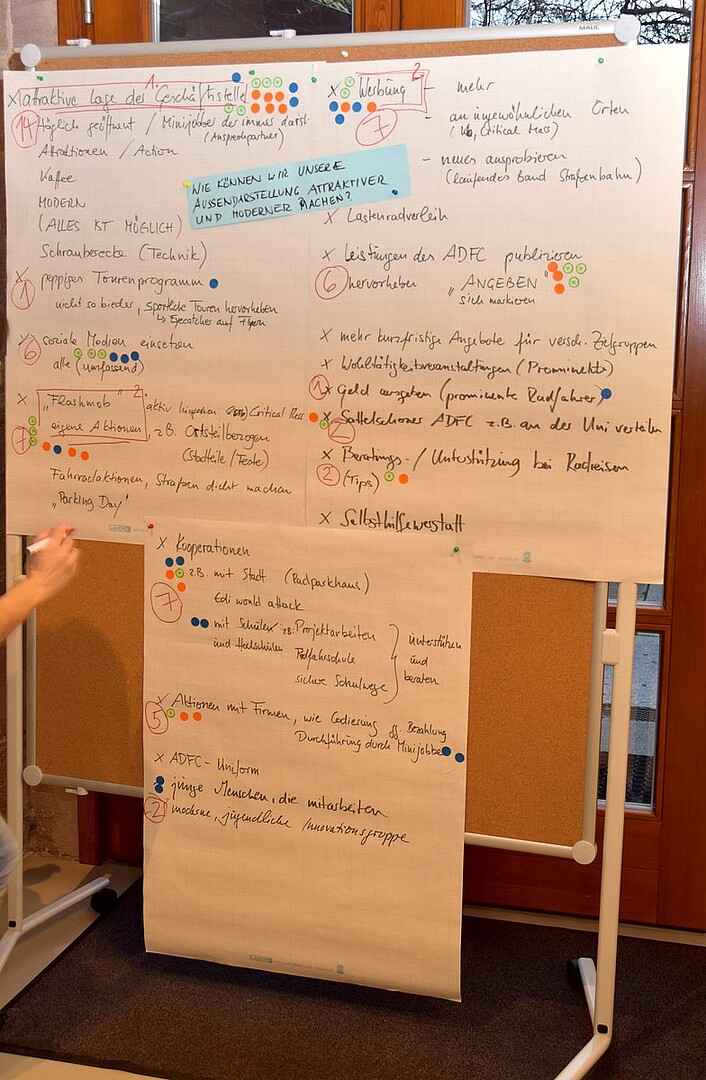 MAUL
1.
x attraktive Lage der Geschäftsstelle
14 täglich geöffnet / Minijobber der immer darst.
(Ansprechpartner)
Attraktionen / Action
Kaffee
MODERN
(ALLES IST MÖGLICH)
Schrauberecke (Technik)
x peppiges Tourenprogramm
1
nicht so bieder, sportliche Touren hervorheben
↳ Eyecatcher auf Flyern
x soziale Medien einsetzen
6
alle (umfassend)
x "Flashmob" 2.
eigene Aktionen, aktiv Critical Mass
7
z.B. Ortsteilbezogen
(Stadtteile / Feste)
Fahrradaktionen, Straßen dicht machen
"Parking Day"
WIE KÖNNEN WIR UNSERE
AUSSENDARSTELLUNG ATTRAKTIVER
UND MODERNER MACHEN?
x Werbung 2
7
- mehr
- an ungewöhnlichen Orten
(Critical Mass)
- neues ausprobieren
(laufendes Band Straßenbahn)
x Lastenradverleih
x Leistungen des ADFC publizieren
6 hervorheben "ANGEBEN"
sich markieren
x mehr kurzfristige Angebote für versch. Zielgruppen
x Wohltätigkeitsveranstaltungen (Prominente)
1 x Geld ausgeben (prominente Radfahrer)
x Sattelschoner ADFC z.B. an der Uni verteilen
2
x Beratungs- / Unterstützung bei Radreisen
2 (Tips)
x Selbsthilfewerkstatt
x Kooperationen
z.B. mit Stadt (Radparkhaus)
7
Edi would attack
mit Schulen z.B. Projektarbeiten
und Hochschulen Radfahrschule
sichere Schulwege
unterstützen
und
beraten
x Aktionen mit Firmen, wie Codierung gg. Bezahlung
5
Durchführung durch Minijobber
x ADFC - Uniform
x junge Menschen, die mitarbeiten
2 moderne, jugendliche Innovationsgruppe